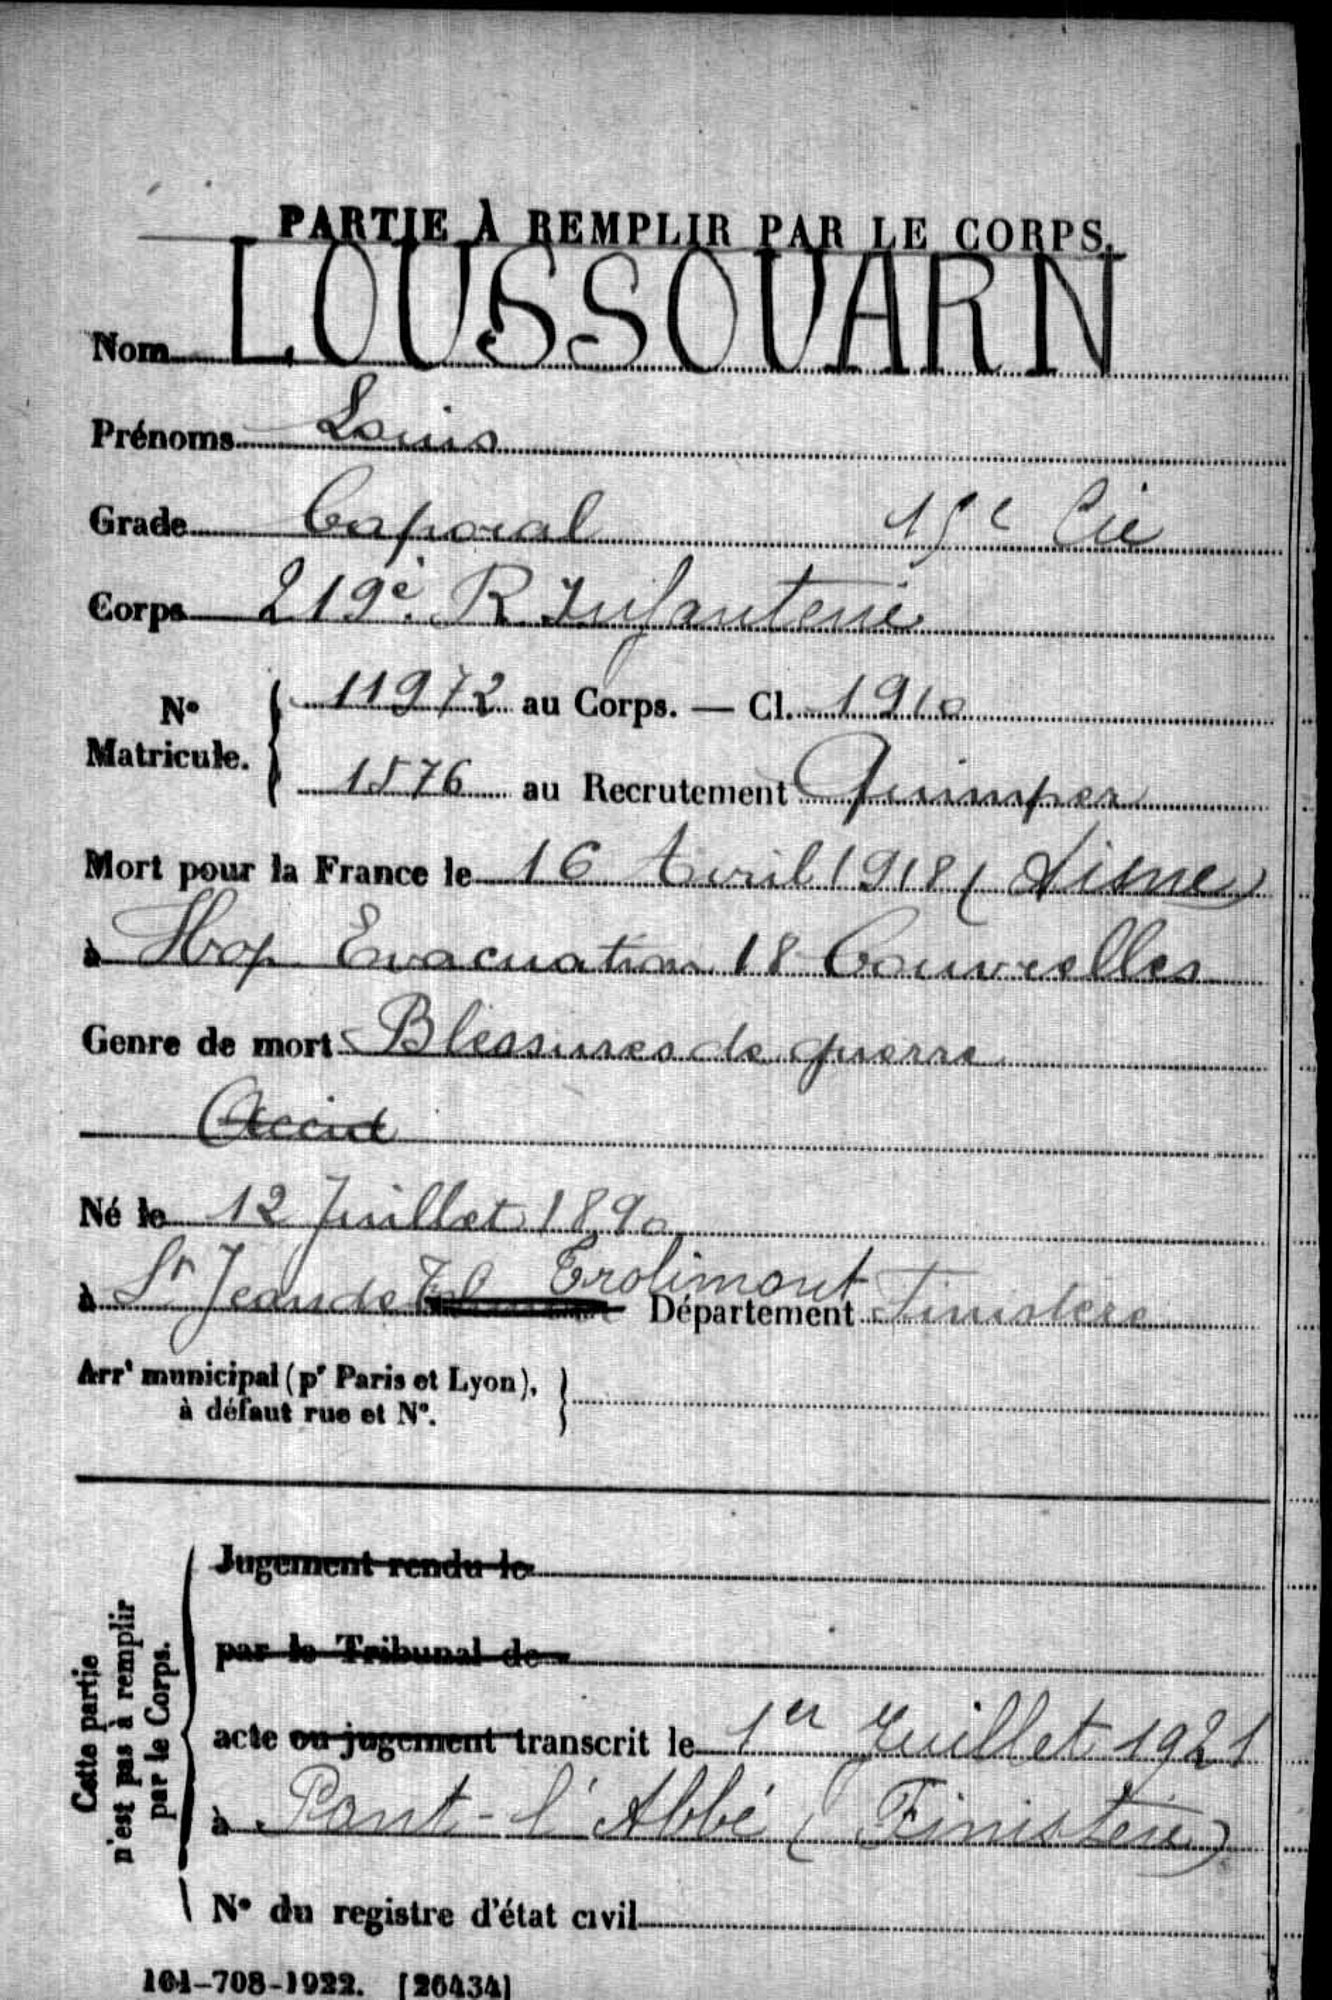 PARTIE À REMPLIR PAR LE CORPS.
Nom LOUSSOUARN
Prénoms Louis
Grade Caporal 15e Cie
Corps 219e R Infanterie
No Matricule. { 11972 au Corps. — Cl. 1910
1576 au Recrutement Quimper
Mort pour la France le 16 Avril 1918 (Aisne)
à Hop Evacuation 18 Couvrelles
Genre de mort Blessures de guerre
Accid
Né le 12 Juillet 1890
à St Jean de Trolimont Département Finistère
Arrt municipal (pr Paris et Lyon), }
à défaut rue et No.
Cette partie
n'est pas à remplir
par le Corps.
Jugement rendu le
par le Tribunal de
acte ou jugement transcrit le 1er Juillet 1921
à Pont-l'Abbé (Finistère)
No du registre d'état civil
101-708-1922. [26434]